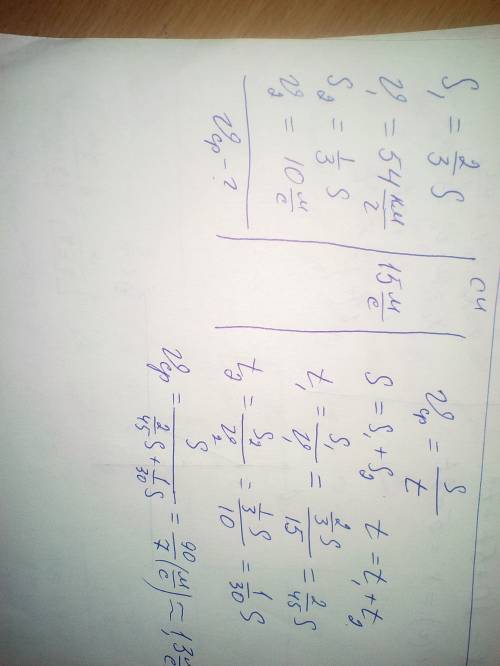 S₁ = 2/3 S
v₁ = 54 км/г
S₂ = 1/3 S
v₂ = 10 м/с
vср - ?
СИ
15 м/с
vср = S/t
S = S₁ + S₂ t = t₁ + t₂
t₁ = S₁/v₁ = (2/3 S)/15 = 2/45 S
t₂ = S₂/v₂ = (1/3 S)/10 = 1/30 S
vср = S/(2/45 S + 1/30 S) = 90/7 (м/с) ≈ 13 м/с